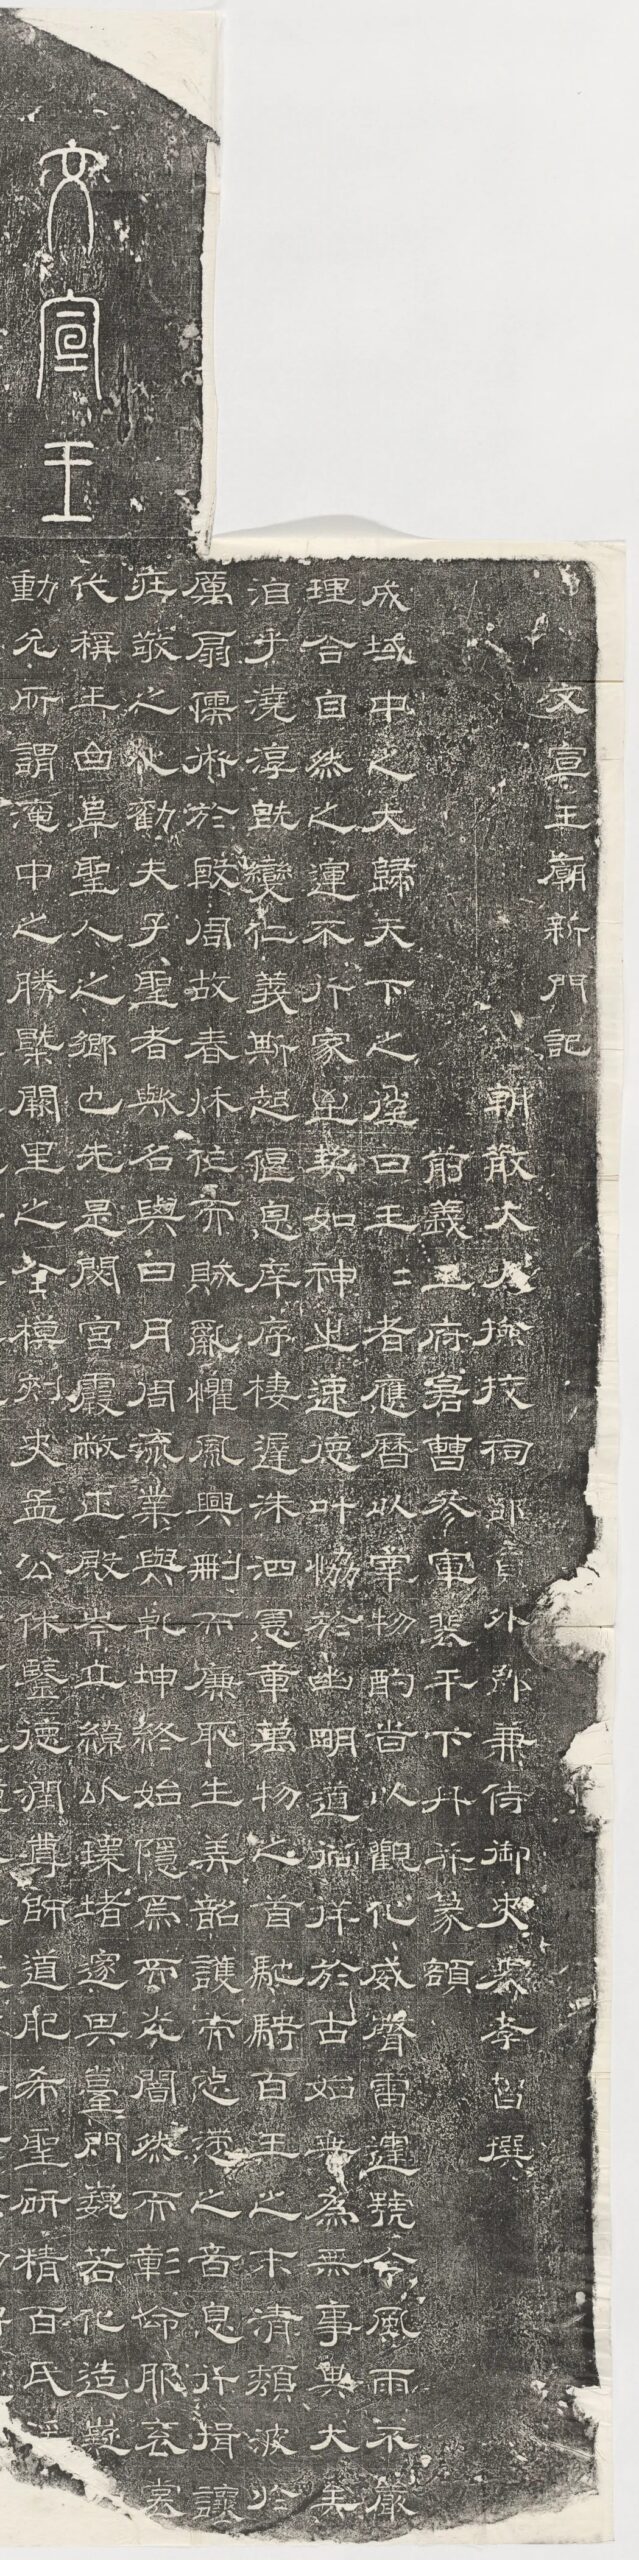 文宣王
文宣王廟新門記
朝散大夫檢校祠部員外郎兼侍御史裴孝智撰
前義王府倉曹參軍裴平下丹并篆額
成域中之大歸天下之曰王〻者應曆以宰物酌昔以觀化威聲雷運號令風雨不嚴
理合自然之運不行家至契如神之速德叶恊於幽明道徜徉於古始無為無事其大美
洎乎澆淳旣變仁義斯起偃息庠序棲遲洙泗憲章萬物之首馳騁百王之末清頹波於
厲扇儒術於殷周故春秋作而賊亂懼風興刪而廉恥生弄韶護而之音息行揖讓
莊敬之心勸夫子聖者歟名與日月周流業與乾坤終始隱焉而光闇然而彰命服袞裳
代稱王曲阜聖人之鄉也先是閟宮霞敞正殿岑立繚以環堵邃其臺門巍若化造嶷
動允所謂淹中之勝槩闕里之全模刺史孟公休鑒德潤尊師道肥希聖研精百氏